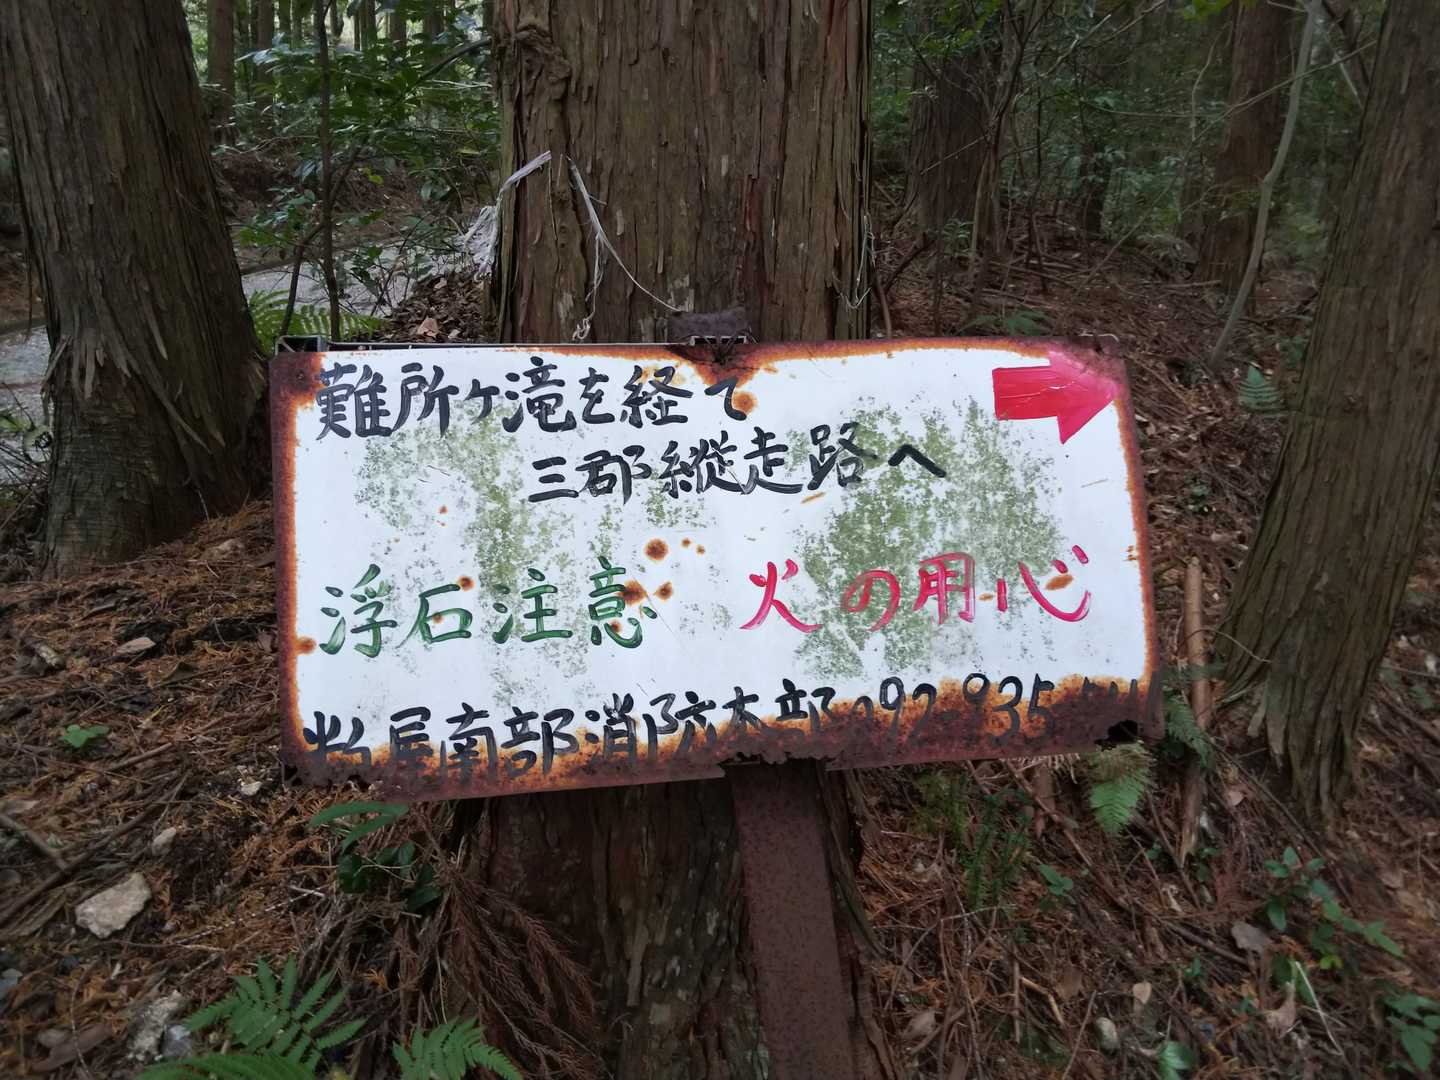 難所ヶ滝を経て
三郡縦走路へ
浮石注意 火の用心
粕屋南部消防本部 092-935-